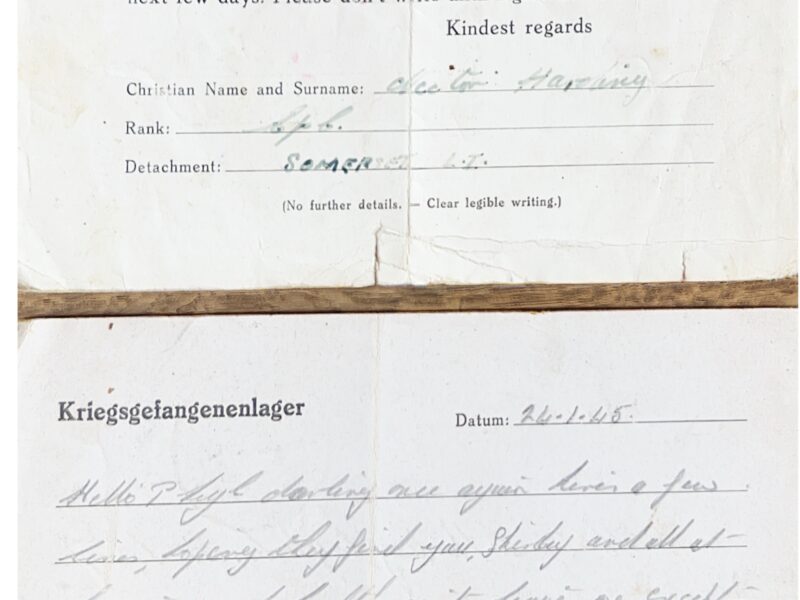 next few days. Please don't
Kindest regards
Christian Name and Surname: Hector Harding
Rank: Cpl.
Detachment: SOMERSET L.I.
(No further details. — Clear legible writing.)
Kriegsgefangenenlager
Datum: 24.1.45.
Hello darling once again here's a few
lines, hoping they find you, Shirley and all at